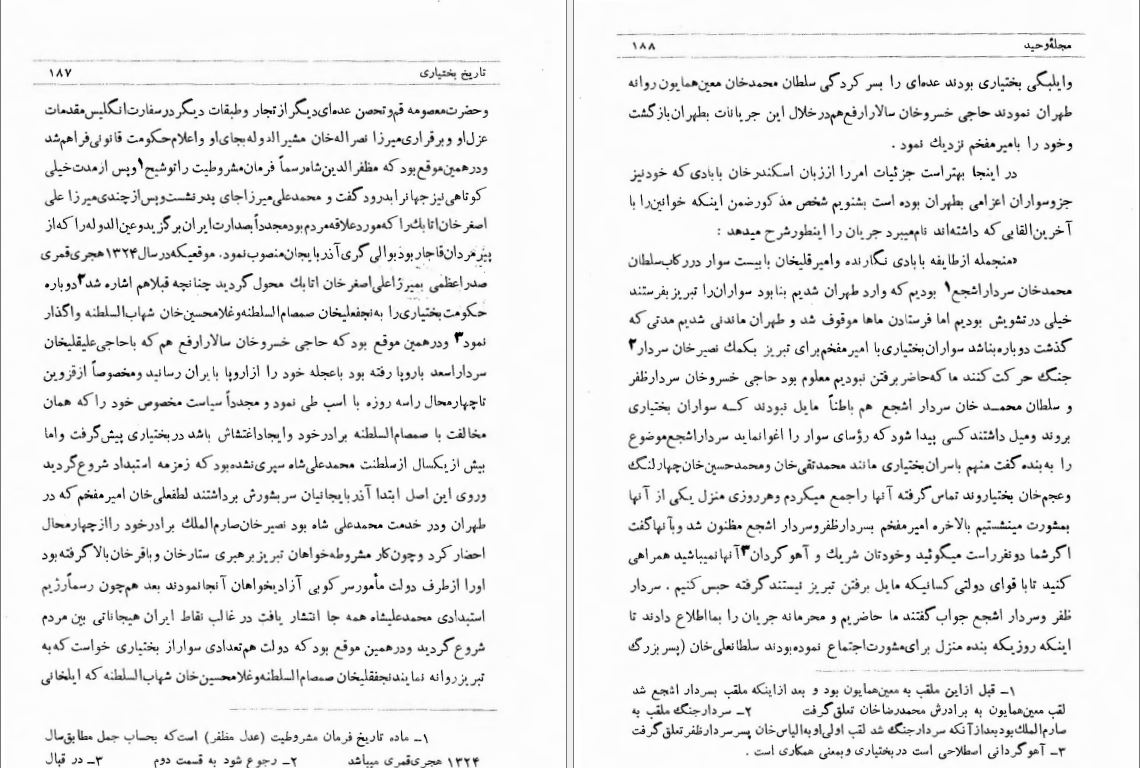 تاریخ بختیاری ۱۸۷
وحضرت‌معصومه قم‌وتحصن عده‌ای‌دیگر از تجار وطبقات دیگر در سفارت‌انگلیس‌مقدمات
عزل‌او وبرقراری‌میرزا نصراله‌خان مشیرالدوله بجای‌او واعلام‌حکومت قانونی‌فراهم‌شد
ودرهمین‌موقع بود که مظفرالدین‌شاه‌رسماً فرمان‌مشروطیت را توشیح۱ وپس ازمدت‌خیلی
کوتاهی‌نیز جهانرا بدرود گفت و محمدعلی‌میرزا جای پدر نشست‌وپس‌از چندی‌میرزا علی
اصغرخان‌اتابك‌را که‌مورد علاقه‌مردم‌بود مجدداً بصدارت ایران‌برگزید وعین‌الدوله‌را که‌از
پیرمردان‌قاجاربود بوالی‌گری‌آذربایجان‌منصوب‌نمود. موقعیکه‌درسال ۱۳۲۴هجری‌قمری
صدراعظمی بمیرزاعلی‌اصغرخان اتابك محول گردید چنانچه قبلاهم اشاره شد۲ دوباره
حکومت‌بختیاری‌را به‌نجفعلیخان صمصام‌السلطنه وغلامحسین‌خان شهاب‌السلطنه واگذار
نمود۳ ودرهمین موقع بود که حاجی خسروخان سالارارفع هم که باحاجی‌علیقلیخان
سرداراسعد باروپا رفته بود باعجله خود را ازاروپا بایران رسانید ومخصوصاً ازقزوین
تاچهارمحال راسه روزه با اسب طی نمود و مجدداً سیاست مخصوص خود را که همان
مخالفت با صمصام‌السلطنه برادرخود وایجاداغتشاش باشد دربختیاری پیش‌گرفت واما
بیش ازیکسال ازسلطنت محمدعلی‌شاه سپری‌نشده‌بود که زمزمه استبداد شروع‌گردید
وروی این اصل ابتدا آذربایجانیان سربشورش برداشتند لطفعلی‌خان امیرمفخم که در
طهران ودر خدمت محمدعلی شاه بود نصیرخان‌صارم‌الملك برادرخود را ازچهارمحال
احضارکرد وچون‌کار مشروطه‌خواهان تبریز برهبری ستارخان و باقرخان‌بالاگرفته‌بود
اورا ازطرف دولت مأمورسرکوبی آزادیخواهان آنجانمودند بعد هم‌چون رسماًرژیم
استبدادی محمدعلیشاه همه جا انتشار یافت در غالب نقاط ایران هیجاناتی بین مردم
شروع‌گردید ودرهمین موقع بود که دولت هم‌تعدادی سوار از بختیاری خواست که‌به
تبریزروانه نمایند نجفقلیخان صمصام‌السلطنه‌وغلامحسین‌خان شهاب‌السلطنه که ایلخانی
۱ـ ماده تاریخ فرمان مشروطیت (عدل مظفر) است‌که بحساب جمل مطابق‌سال
۱۳۲۴ هجری‌قمری میباشد ۲ـ رجوع شود به قسمت دوم ۳ـ در قبال
مجلهٔ وحید ۱۸۸
وایلبگی بختیاری بودند عده‌ای را بسر کردگی سلطان محمدخان معین‌همایون روانه
طهران نمودند حاجی خسروخان سالارارفع‌هم‌درخلال این جریانات بطهران‌بازگشت
وخود را بامیرمفخم نزدیك نمود .
در اینجا بهتراست جزئیات امررا اززبان اسکندرخان بابادی‌که خودنیز
جزوسواران اعزامی بطهران بوده است بشنویم شخص مذکورضمن اینکه خوانین‌را با
آخرین‌القابی‌که داشته‌اند نام‌میبرد جریان را اینطورشرح میدهد :
«منجمله ازطایفه بابادی نگارنده وامیرقلیخان بابیست سوار دررکاب‌سلطان
محمدخان سردار اشجع۱ بودیم‌که وارد طهران شدیم بنابود سواران‌را تبریز بفرستند
خیلی درتشویش بودیم اما فرستادن ماها موقوف شد و طهران ماندنی شدیم مدتی که
گذشت دوباره‌بناشد سواران‌بختیاری‌با امیرمفخم‌برای تبریز بکمك نصیرخان سردار۲
جنگ حرکت‌کنند ما که‌حاضربرفتن نبودیم معلوم بود حاجی خسروخان سردارظفر
و سلطان محمد خان سردار اشجع هم باطناً مایل نبودند کسه سواران بختیاری
بروند ومیل داشتند کسی پیدا شود که رؤسای سوار را اغوانماید سرداراشجع‌موضوع
را به‌بنده گفت منهم باسران‌بختیاری مانند محمدتقی‌خان ومحمدحسین‌خان‌چهارلنگ
وعجم‌خان بختیاروند تماس‌گرفته آنها راجمع میکردم وهرروزی منزل یکی از آنها
بمشورت مینشستیم بالاخره امیرمفخم بسردارظفروسردار اشجع مظنون شد وبآنهاگفت
اگرشما دونفرراست میگوئید وخودتان شریك و آهوگردان۳ آنهانمیباشید همراهی
کنید تابا قوای دولتی کسانیکه مایل برفتن تبریز نیستند گرفته حبس کنیم . سردار
ظفر وسردار اشجع جواب گفتند ما حاضریم و محرمانه جریان را بمااطلاع دادند تا
اینکه روزیکه بنده منزل برای‌مشورت‌اجتماع نموده‌بودند سلطانعلی‌خان (پسربزرگ
۱ـ قبل ازاین ملقب به معین‌همایون بود و بعد ازاینکه ملقب بسردار اشجع شد
لقب معین‌همایون به برادرش محمدرضاخان تعلق‌گرفت ۲ـ سردارجنگ ملقب به
صارم‌الملك‌بودبعدازآنکه سردارجنگ شد لقب اولی‌اوبه‌الیاس‌خان پسرسردارظفرتعلق‌گرفت
۳ـ آهوگردانی اصطلاحی است دربختیاری وبمعنی همکاری است .